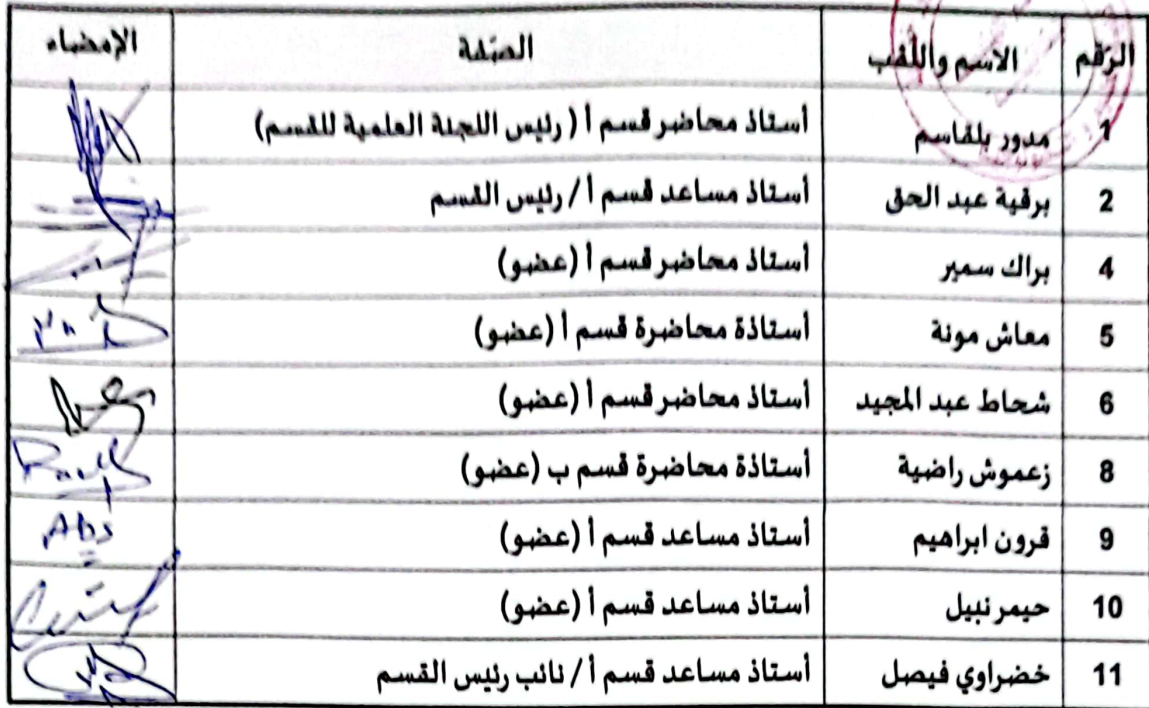 الرّقم الاسم واللّقب الصّفة الإمضاء
1 مدور بلقاسم أستاذ محاضر قسم أ (رئيس اللجنة العلمية للقسم)
2 برقية عبد الحق أستاذ مساعد قسم أ / رئيس القسم
4 براك سمير أستاذ محاضر قسم أ (عضو)
5 معاش مونة أستاذة محاضرة قسم أ (عضو)
6 شحاط عبد المجيد أستاذ محاضر قسم أ (عضو)
8 زعموش راضية أستاذة محاضرة قسم ب (عضو)
9 قرون ابراهيم أستاذ مساعد قسم أ (عضو) Abs
10 حيمر نبيل أستاذ مساعد قسم أ (عضو)
11 خضراوي فيصل أستاذ مساعد قسم أ / نائب رئيس القسم